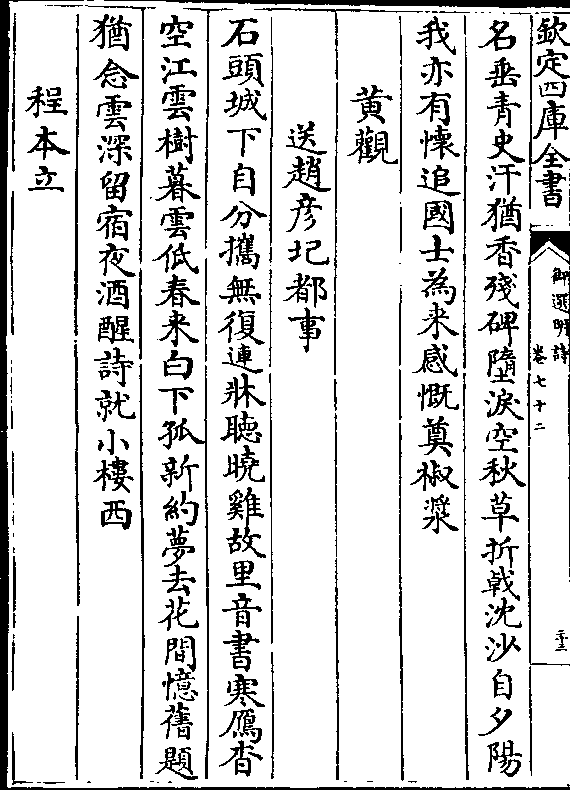 欽定四庫全書
御選明詩
卷七十二
名垂青史汗猶香殘碑墮淚空秋草折戟沈沙自夕陽
我亦有懷追國士為来感慨奠椒漿
黃觀
送趙彥圯都事
石頭城下自分攜無復連牀聽曉雞故里音書寒鴈杳
空江雲樹暮雲低春来白下孤新約夢去花間憶舊題
猶念雲深留宿夜酒醒詩就小樓西
程本立